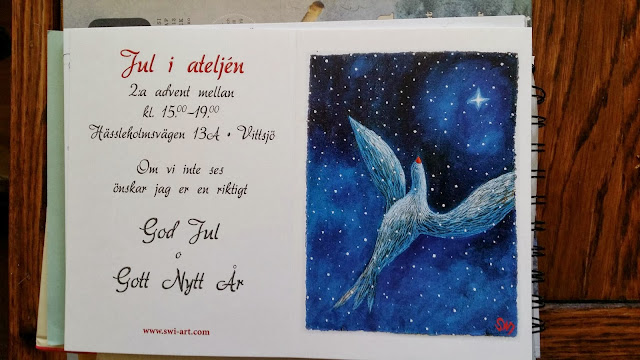 Jul i ateljén
2:a advent mellan
kl. 15.00–19.00
Hässleholmsvägen 13A • Vittsjö
Om vi inte ses
önskar jag er en riktigt
God Jul
o
Gott Nytt År
www.swi-art.com